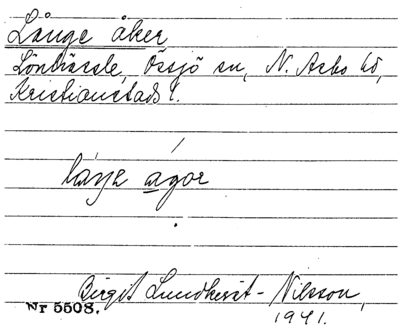 Långe åker
Lönhässle, Össjö sn, N. Asbo hd,
Kristianstads l.
agor
Birgit Lundkvist - Nilsson,
Nr 5508. 1941.